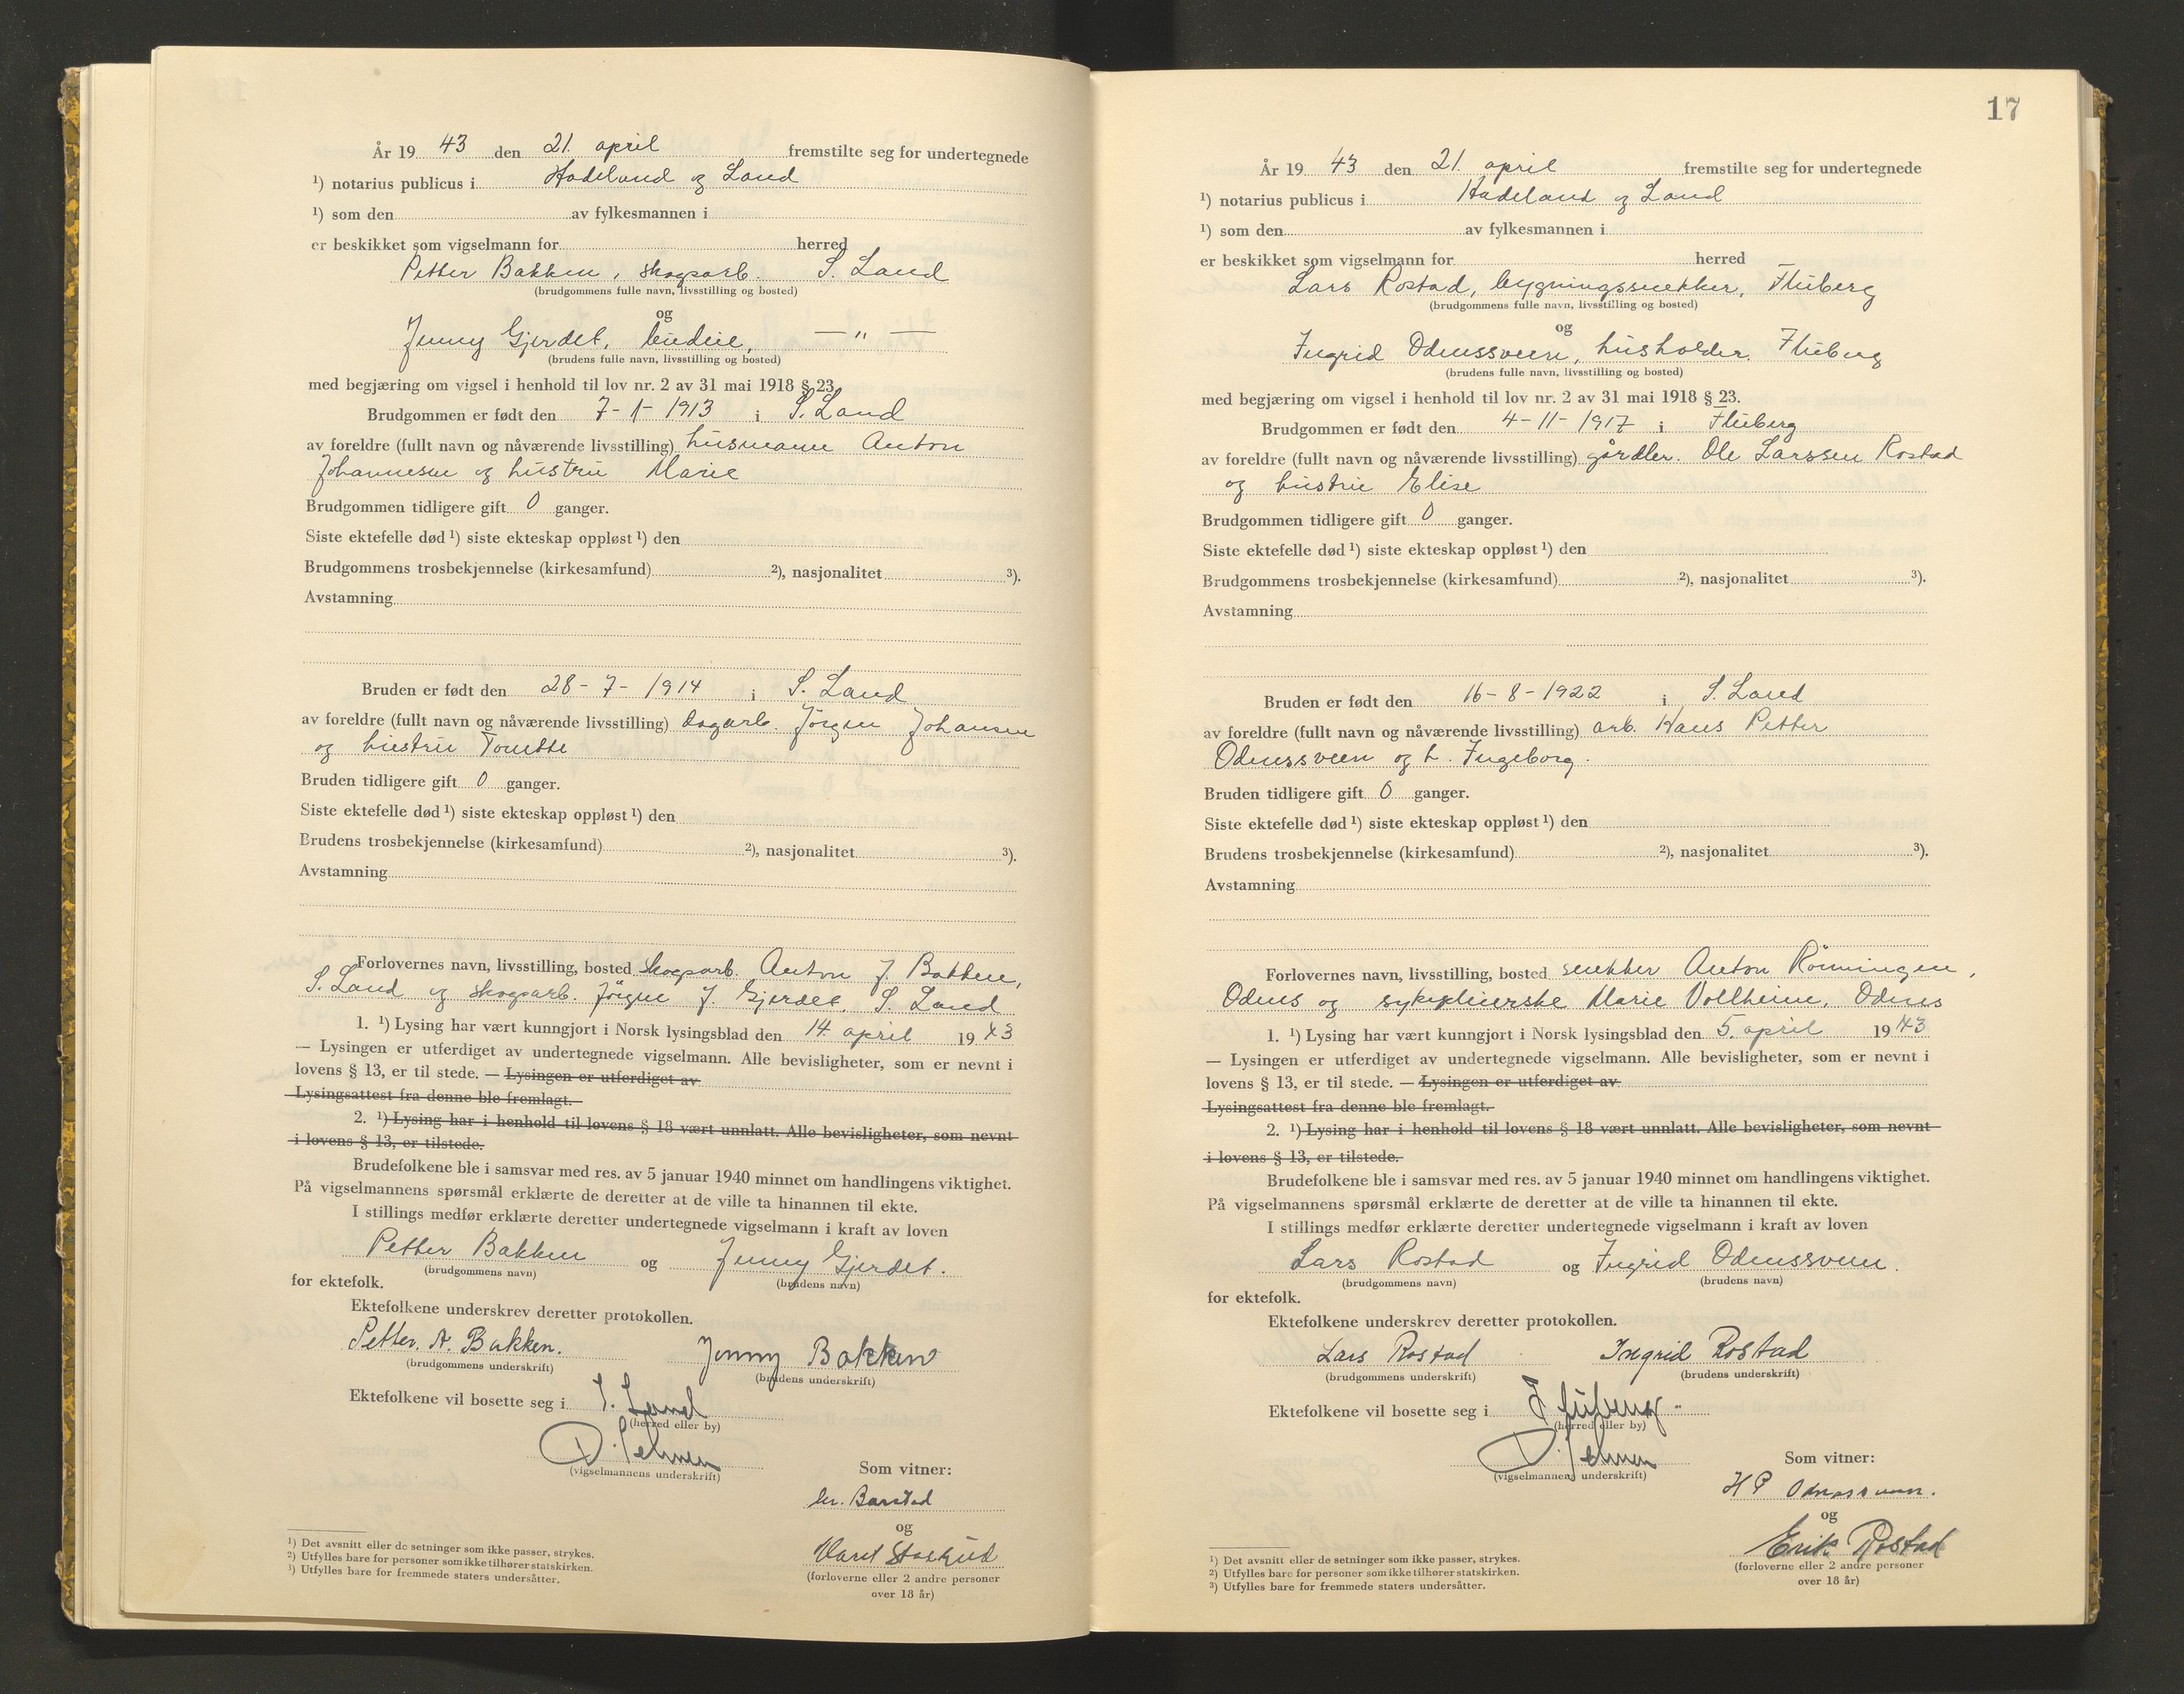 År 19 43 den 21. april fremstilte seg for undertegnede
¹) notarius publicus i Hadeland og Land
¹) som den av fylkesmannen i
er beskikket som vigselmann for herred
Petter Bakken, skogsarb. S. Land
(brudgommens fulle navn, livsstilling og bosted)
og
Jenny Gjerdet, — " —
(brudens fulle navn, livsstilling og bosted)
med begjæring om vigsel i henhold til lov nr. 2 av 31 mai 1918 § 23.
Brudgommen er født den 7-1-1913 i S. Land
av foreldre (fullt navn og nåværende livsstilling) husmann Anton
Johannesen og hustru Marie
Brudgommen tidligere gift 0 ganger.
Siste ektefelle død ¹) siste ekteskap oppløst ¹) den
Brudgommens trosbekjennelse (kirkesamfund) ²), nasjonalitet ³).
Avstamning
Bruden er født den 28-7-1914 i S. Land
av foreldre (fullt navn og nåværende livsstilling) dagarb. Jörgen Johansen
og hustru Tomette
Bruden tidligere gift 0 ganger.
Siste ektefelle død ¹) siste ekteskap oppløst ¹) den
Brudens trosbekjennelse (kirkesamfund) ²), nasjonalitet ³).
Avstamning
Forlovernes navn, livsstilling, bosted skogsarb. Anton J. Bakken,
S. Land og skogsarb. Jörgen J. Gjerdet, S. Land
1. ¹) Lysing har vært kunngjort i Norsk lysingsblad den 14. april 19 43
— Lysingen er utferdiget av undertegnede vigselmann. Alle bevisligheter, som er nevnt i
lovens § 13, er til stede. — Lysingen er utferdiget av
Lysingsattest fra denne ble fremlagt.
2. ¹) Lysing har i henhold til lovens § 18 vært unnlatt. Alle bevisligheter, som nevnt
i lovens § 13, er tilstede.
Brudefolkene ble i samsvar med res. av 5 januar 1940 minnet om handlingens viktighet.
På vigselmannens spørsmål erklærte de deretter at de ville ta hinannen til ekte.
I stillings medfør erklærte deretter undertegnede vigselmann i kraft av loven
Petter Bakken og Jenny Gjerdet.
(brudgommens navn) (brudens navn)
for ektefolk.
Ektefolkene underskrev deretter protokollen.
Petter. A. Bakken. Jenny Bakken
(brudgommens underskrift) (brudens underskrift)
Ektefolkene vil bosette seg i S. Land
(herred eller by)
(vigselmannens underskrift)
Som vitner:
Barstad
og
(forloverne eller 2 andre personer
over 18 år)
¹) Det avsnitt eller de setninger som ikke passer, strykes.
²) Utfylles bare for personer som ikke tilhører statskirken.
³) Utfylles bare for fremmede staters undersåtter.
17
År 19 43 den 21. april fremstilte seg for undertegnede
¹) notarius publicus i Hadeland og Land
¹) som den av fylkesmannen i
er beskikket som vigselmann for herred
Lars Rostad, bygningssnekker, Fluberg
(brudgommens fulle navn, livsstilling og bosted)
og
Ingrid Odnssveen, husholder. Fluberg
(brudens fulle navn, livsstilling og bosted)
med begjæring om vigsel i henhold til lov nr. 2 av 31 mai 1918 § 23.
Brudgommen er født den 4-11-1917 i Fluberg
av foreldre (fullt navn og nåværende livsstilling) gårdbr. Ole Larssen Rostad
og hustru Elise
Brudgommen tidligere gift 0 ganger.
Siste ektefelle død ¹) siste ekteskap oppløst ¹) den
Brudgommens trosbekjennelse (kirkesamfund) ²), nasjonalitet ³).
Avstamning
Bruden er født den 16-8-1922 i S. Land
av foreldre (fullt navn og nåværende livsstilling) arb. Hans Petter
Odnssveen og h. Ingeborg.
Bruden tidligere gift 0 ganger.
Siste ektefelle død ¹) siste ekteskap oppløst ¹) den
Brudens trosbekjennelse (kirkesamfund) ²), nasjonalitet ³).
Avstamning
Forlovernes navn, livsstilling, bosted snekker Anton Rönningen,
Odnes og sykepleierske Marie Vollheim, Odnes
1. ¹) Lysing har vært kunngjort i Norsk lysingsblad den 5. april 19 43
— Lysingen er utferdiget av undertegnede vigselmann. Alle bevisligheter, som er nevnt i
lovens § 13, er til stede. — Lysingen er utferdiget av
Lysingsattest fra denne ble fremlagt.
2. ¹) Lysing har i henhold til lovens § 18 vært unnlatt. Alle bevisligheter, som nevnt
i lovens § 13, er tilstede.
Brudefolkene ble i samsvar med res. av 5 januar 1940 minnet om handlingens viktighet.
På vigselmannens spørsmål erklærte de deretter at de ville ta hinannen til ekte.
I stillings medfør erklærte deretter undertegnede vigselmann i kraft av loven
Lars Rostad og Ingrid Odnssveen.
(brudgommens navn) (brudens navn)
for ektefolk.
Ektefolkene underskrev deretter protokollen.
Lars Rostad Ingrid Rostad
(brudgommens underskrift) (brudens underskrift)
Ektefolkene vil bosette seg i Fluberg
(herred eller by)
(vigselmannens underskrift)
Som vitner:
H P Odnessveen.
og
Erik Rostad
(forloverne eller 2 andre personer
over 18 år)
¹) Det avsnitt eller de setninger som ikke passer, strykes.
²) Utfylles bare for personer som ikke tilhører statskirken.
³) Utfylles bare for fremmede staters undersåtter.